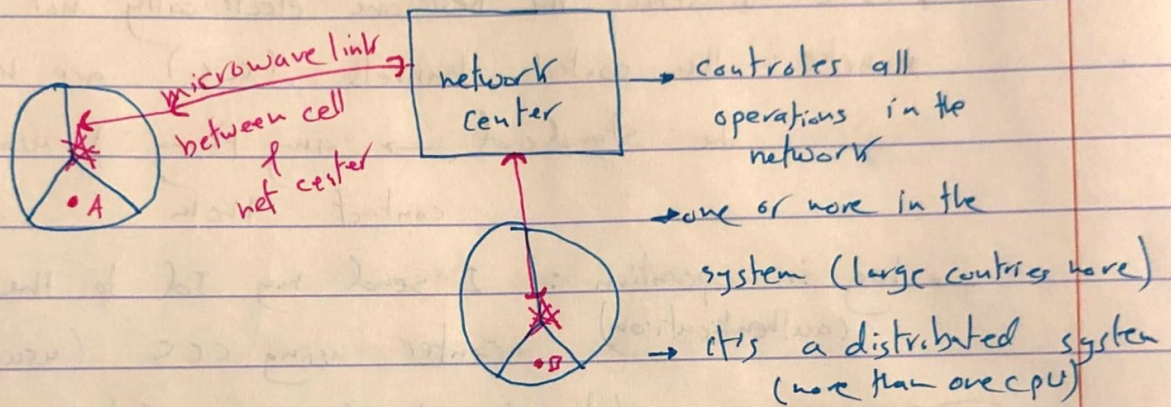 microwave link
between cell
&
net center
A
network
center
→ controles all
operations in the
network
→ one or more in the
system (large contries more)
B
→ it's a distributed system
(more than one cpu)